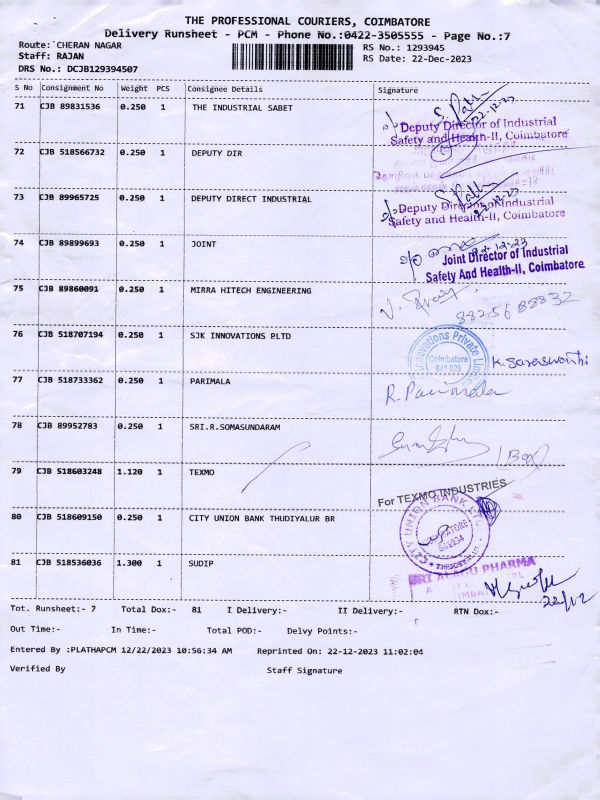 THE PROFESSIONAL COURIERS, COIMBATORE
Delivery Runsheet - PCM - Phone No.:0422-3505555 - Page No.:7
Route: CHERAN NAGAR RS No.: 1293945
Staff: RAJAN RS Date: 22-Dec-2023
DRS No.: DCJB129394507
S No Consignment No Weight PCS Consignee Details Signature
71 CJB 89831536 0.250 1 THE INDUSTRIAL SABET
22-12-23
Deputy Director of Industrial
Safety and Health-II, Coimbatore
72 CJB 518566732 0.250 1 DEPUTY DIR
73 CJB 89965725 0.250 1 DEPUTY DIRECT INDUSTRIAL
22-12-23
Deputy Director of Industrial
Safety and Health-II, Coimbatore
74 CJB 89899693 0.250 1 JOINT
22-12-23
Joint Director of Industrial
Safety And Health-II, Coimbatore
75 CJB 89860091 0.250 1 MIRRA HITECH ENGINEERING
88256 88832
76 CJB 518707194 0.250 1 SJK INNOVATIONS PLTD
Innovations Private Limited
Coimbatore
641 029
K. Saraswathi
77 CJB 518733362 0.250 1 PARIMALA
R. Parimala
78 CJB 89952783 0.250 1 SRI.R.SOMASUNDARAM
79 CJB 518603248 1.120 1 TEXMO
(Box)
For TEXMO INDUSTRIES
80 CJB 518609150 0.250 1 CITY UNION BANK THUDIYALUR BR
CITY UNION BANK LTD
81 CJB 518536036 1.300 1 SUDIP
SRI ALAGU PHARMA
22/12
Tot. Runsheet:- 7 Total Dox:- 81 I Delivery:- II Delivery:- RTN Dox:-
Out Time:- In Time:- Total POD:- Delvy Points:-
Entered By :PLATHAPCM 12/22/2023 10:56:34 AM Reprinted On: 22-12-2023 11:02:04
Verified By Staff Signature